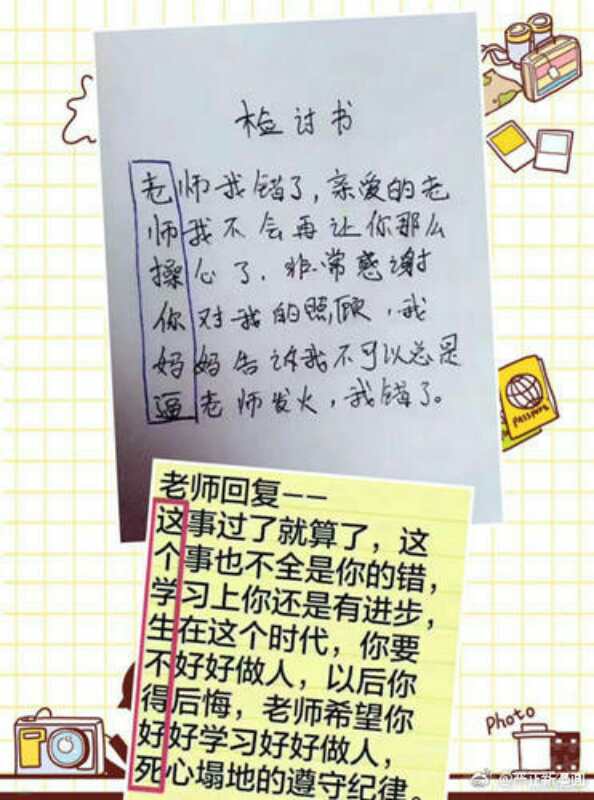 检讨书
老师我错了，亲爱的老
师我不会再让你那么
操心了，非常感谢
你对我的照顾，我
妈妈告诉我不可以总是
逼老师发火，我错了。
老师回复——
这事过了就算了，这
个事也不全是你的错，
学习上你还是有进步，
生在这个时代，你要
不好好做人，以后你
得后悔，老师希望你
好好学习好好做人，
死心塌地的遵守纪律。
Passport
Photo